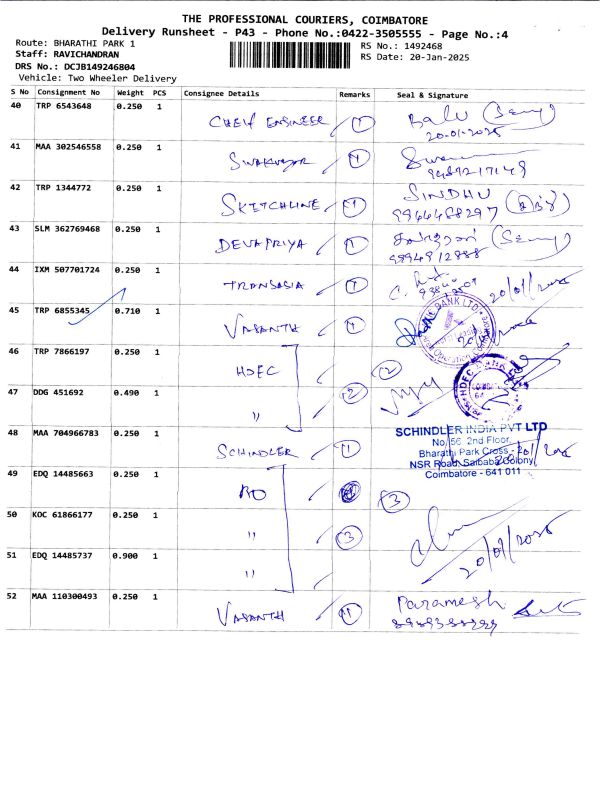 THE PROFESSIONAL COURIERS, COIMBATORE
Delivery Runsheet - P43 - Phone No.:0422-3505555 - Page No.:4
Route: BHARATHI PARK 1
RS No.: 1492468
Staff: RAVICHANDRAN
RS Date: 20-Jan-2025
DRS No.: DCJB149246804
Vehicle: Two Wheeler Delivery
S No Consignment No Weight PCS Consignee Details Remarks Seal & Signature
40 TRP 6543648 0.250 1 CHEIF ENGINEER 1 Balu
20-01-2025
41 MAA 302546558 0.250 1 1
9489217149
42 TRP 1344772 0.250 1 SKETCHLINE 1 SINDHU
9966488297
43 SLM 362769468 0.250 1 DEVAPRIYA 1
9894912888
44 IXM 507701724 0.250 1 TRANSASIA 1
20/01/2025
45 TRP 6855345 0.710 1 VASANTH 1
46 TRP 7866197 0.250 1 HDFC 2
47 DDG 451692 0.490 1 " 2
48 MAA 704966783 0.250 1 SCHINDLER 1
SCHINDLER INDIA PVT LTD
No. 56 2nd Floor,
Bharathi Park Cross
NSR Road, Saibaba Colony,
Coimbatore - 641 011
49 EDQ 14485663 0.250 1 RO 3
50 KOC 61866177 0.250 1 " 3
20/01/2025
51 EDQ 14485737 0.900 1 "
52 MAA 110300493 0.250 1 VASANTH 1 Paramesh